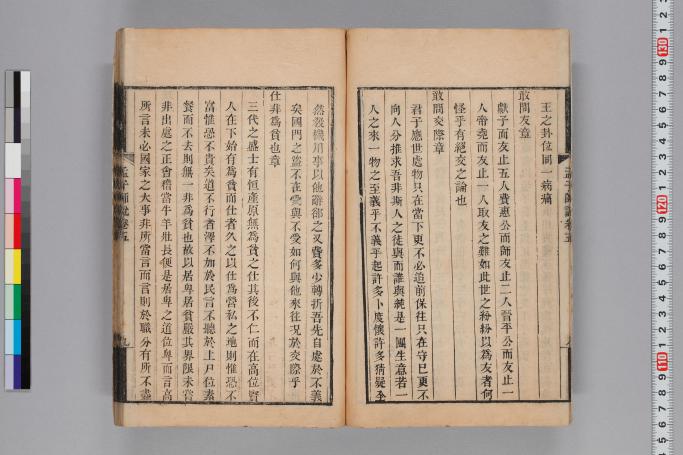 王之卦位同一病痛
敢問友章
獻子而友止五人費惠公而師友止二人晉平公而友止一
人帝堯而友止一人取友之難如此世之紛紛以為友者何
怪乎有絕交之論也
敢問交際章
君子應世處物只在當下更不必追前保往只在守已更不
向人分推求吾非斯人之徒與而誰與純是一團生意若一
人之來一物之至義乎不義乎起許多卜度懷許多猜疑全
然殺機用事以他辭郤之又費多少轉折吾先自處於不義
矣國門之盜不在愛與不愛如何與他來往况於交際乎
仕非為貧也章
三代之盛士有恒產原無為貧之仕其後不仁而在高位賢
人在下始有為貧而仕者久之以仕為營私之地則惟恐不
富惟恐不貴矣道不行者澤不加於民言不聽於上尸位素
餐而不去則無一非為貧也故以居卑居貧嚴其界限未嘗
非出處之正會稽當牛羊壯長便是居卑之道位卑而言高
所言未必國家之大事非所當言而言則於職分有所不盡
孟子師說卷五
九
130
110